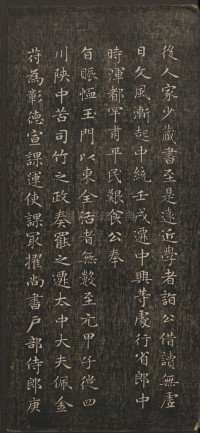 後人家少藏書至是遠近學者詣公借讀無虛
日文風漸起中統壬戌遷中興等處行省郎中
時渾都罕甫平民艱食公奉
旨賑恤玉門以東全活者無數至元甲子從四
川陝中苦司竹之政奏罷之遷太中大夫佩金
符為彰德宣課運使課最擢尚書戶部侍郎庚